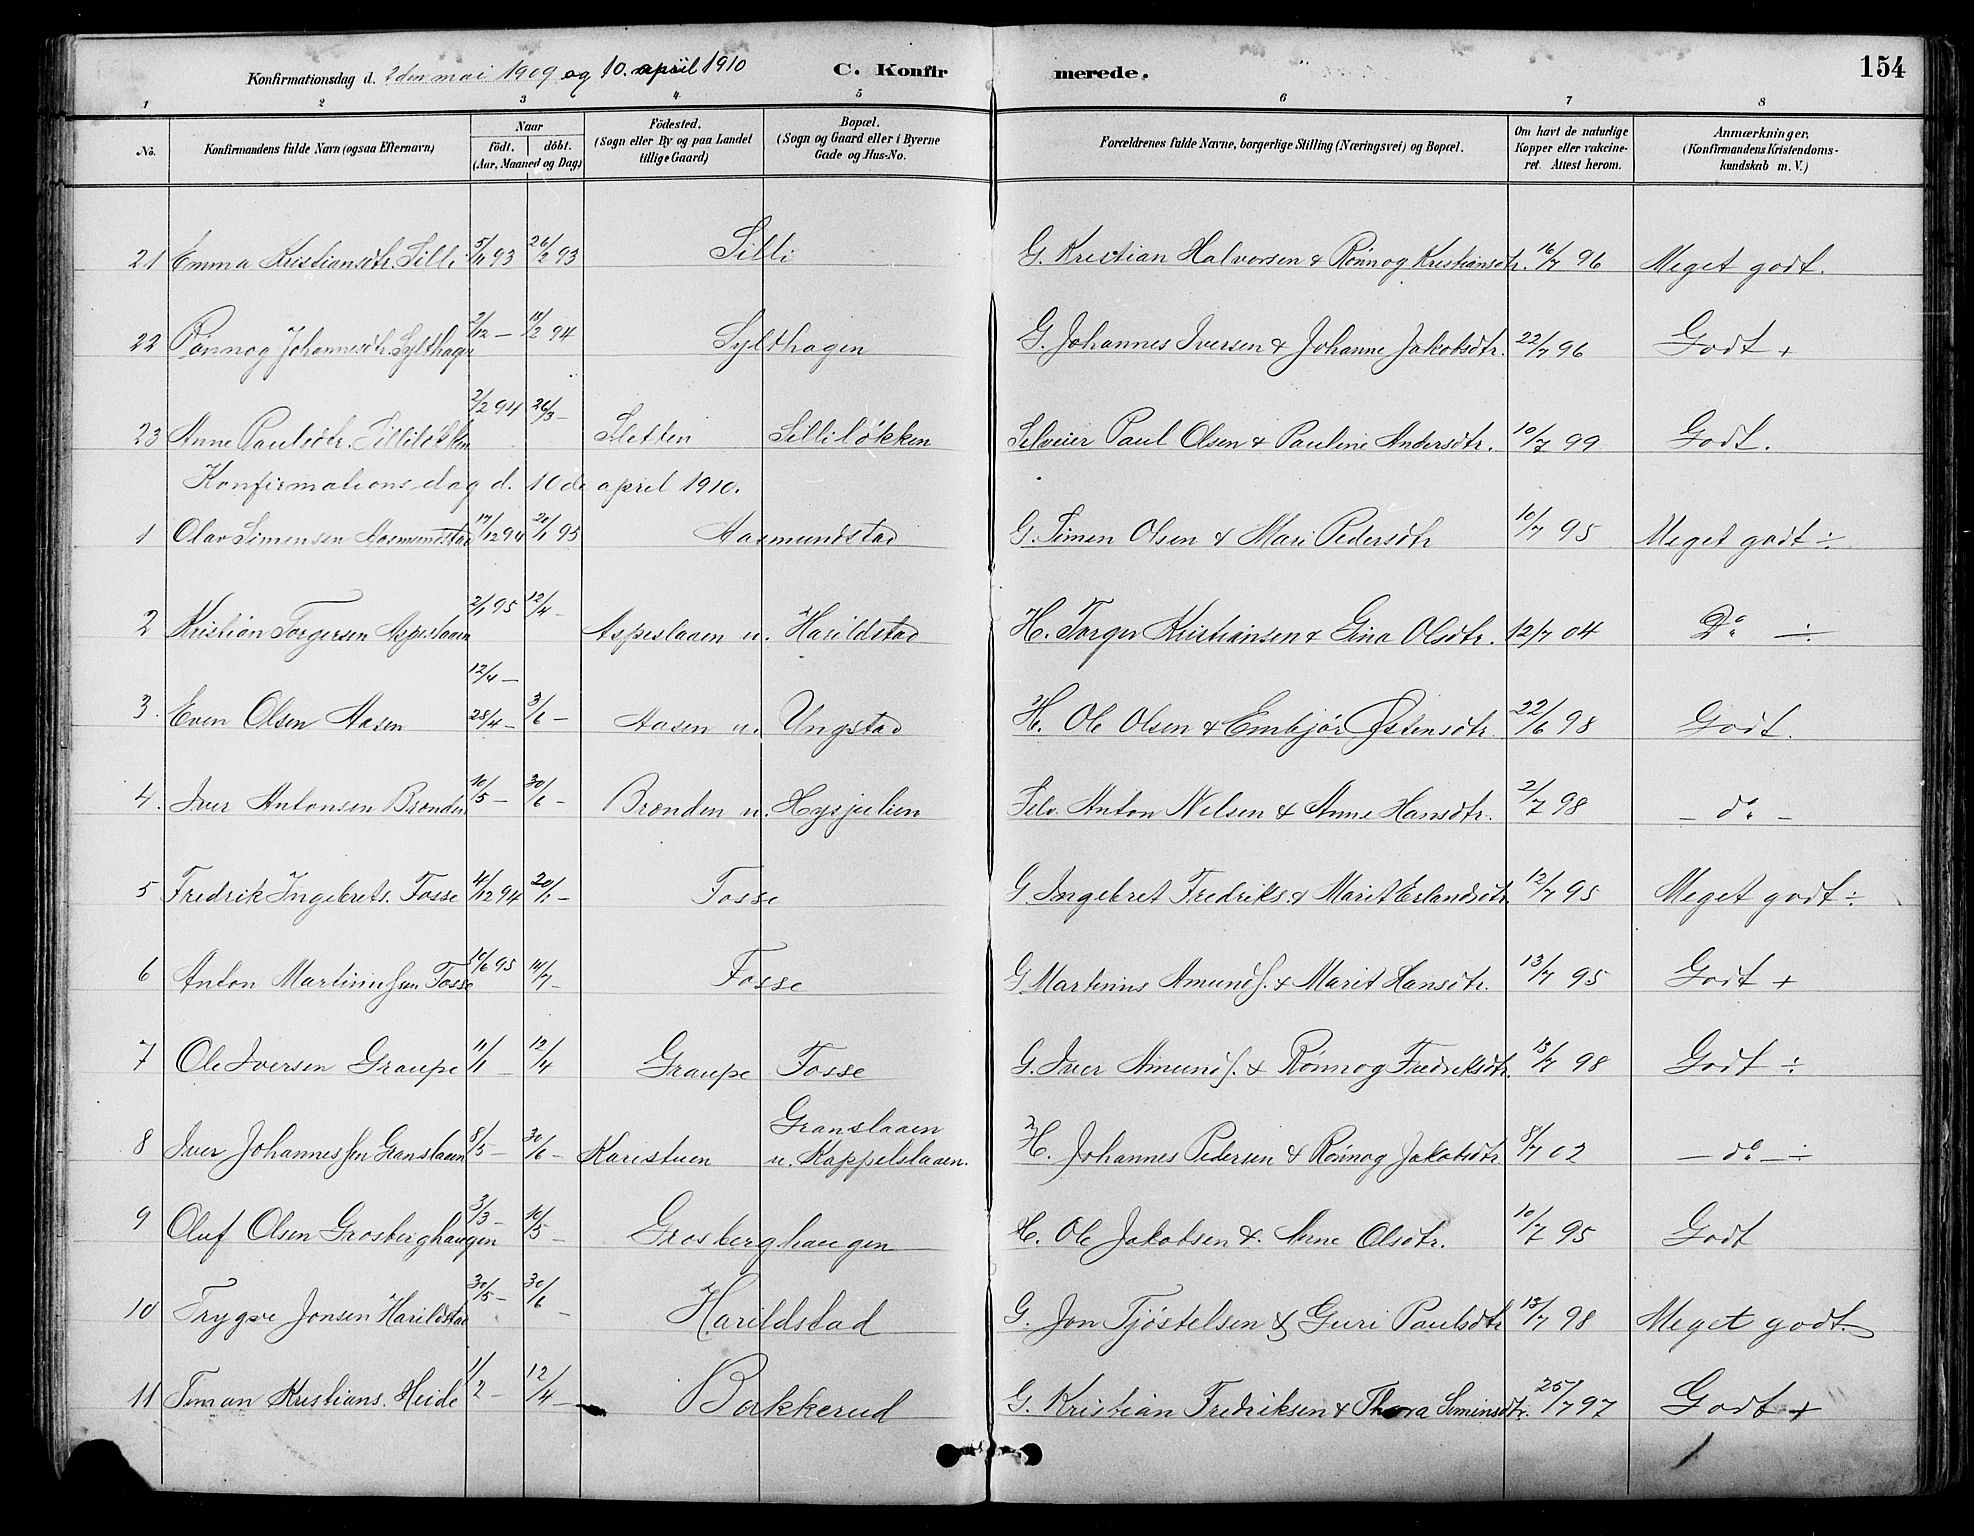 Konfirmationsdag d. 2den mai 1909 og 10. april 1910 C. Konfirmerede. 154
1 2 3 4 5 6 7 8
No. Konfirmandens fulde Navn (ogsaa Efternavn) Naar födt. döbt. (Aar, Maaned og Dag) Födested. (Sogn eller By og paa Landet tillige Gaard) Bopæl. (Sogn og Gaard eller i Byerne Gade og Hus-No. Forældrenes fulde Navne, borgerlige Stilling (Næringsvei) og Bopæl. Om havt de naturlige Kopper eller vakcineret. Attest herom. Anmærkninger. (Konfirmandens Kristendomskundskab m. V.)
21 Emma Kristiansdtr. Silli 5/11 93 26/2 93 Silli G. Kristian Halvorsen & Rønnog Kristiansdtr. 16/7 96 Meget godt.
22 Rønnog Johannesdtr. Sylthagen 2/12 — 18/2 94 Sylthagen G. Johannes Iversen & Johanne Jakobsdtr. 22/7 96 Godt +
23 Anne Paulsdtr. Silliløkken 2/2 94 26/3 — Sletten Silliløkken Selveier Paul Olsen & Pauline Andersdtr. 10/7 99 Godt.
Konfirmationsdag d. 10de april 1910.
1 Olav Simensen Aasmundstad 17/12 94 20/1 95 Aasmundstad G. Simen Olsen & Mari Pedersdtr 10/7 95 Meget godt ÷
2 Kristian Torgersen Aspeslaaen 2/1 95 12/4 — Aspeslaaen u. Harildstad H. Torger Kristiansen & Gina Olsdtr. 12/7 04 Do ÷
12/4 —
3. Even Olsen Aasen 28/4 — 3/6 — Aasen u. Ungstad H. Ole Olsen & Embjør Østensdtr. 22/6 98 Godt.
4. Iver Antonsen Brænden 10/5 — 30/6 — Brænden u. Hysjulien Selv. Anton Nelsen & Anne Hansdtr. 2/7 98 — do —
5 Fredrik Ingebrets. Fosse 4/12 94 20/1 — Fosse G. Ingebret Fredriks. & Marit Erlandsdtr. 12/7 95 Meget godt ÷
6 Anton Martiniussen Fosse 10/6 95 14/7 — Fosse G. Martinius Amunds. & Marit Hansdtr. 13/7 95 Godt +
7 Ole Iversen Graupe 11/1 — 12/4 Graupe Fosse G. Iver Amunds. & Rønnog Fredriksdtr. 13/7 98 Godt ÷
8 Iver Johannessen Granslaaen 8/5 — 30/6 — Karistuen Granslaaen u. Kappelslaaen. H. Johannes Pedersen & Rønnog Jakobsdtr. 8/7 02 — do — ÷
9 Oluf Olsen Grosberghaugen 3/3 — 10/5 — Grosberghaugen H. Ole Jakobsen & Anne Olsdtr. 10/7 95 Godt
10 Trygve Jonsen Harildstad 30/5 — 30/6 — Harildstad G. Jon Tjøstelsen & Guri Paulsdtr 13/7 98 Meget godt.
11 Siman Kristians. Heide 11/2 — 12/4 — Bakkerud G. Kristian Fredriksen & Thora Simensdtr. 25/7 97 Godt +